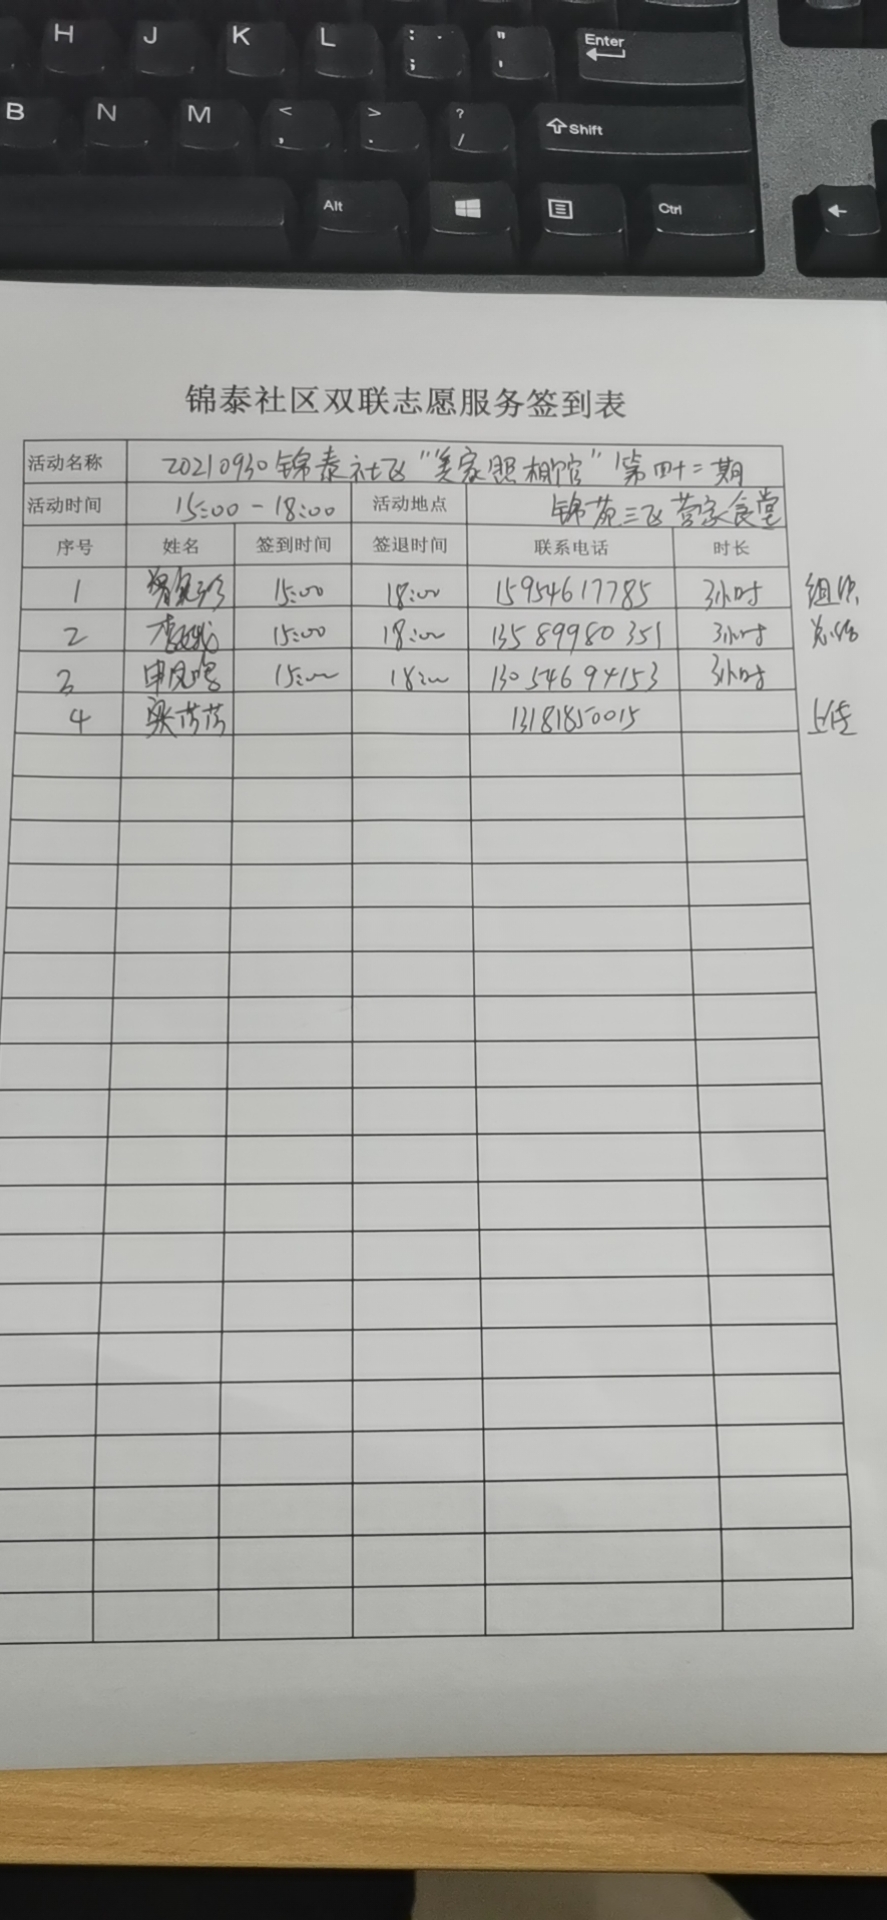 H J K L : ; " ' Enter
B N M < , > . ? / Shift
Alt Ctrl
锦泰社区双联志愿服务签到表
活动名称 20210930锦泰社区“美家照相馆”第四十二期
活动时间 15:00-18:00 活动地点 锦苑三区 食堂
序号 姓名 签到时间 签退时间 联系电话 时长
1 15:00 18:00 15954617785 3小时 组织
2 15:00 18:00 13589980351 3小时 总结
3 申凤鸣 15:00 18:00 13054694153 3小时
4 张芳芳 13181850015 上传